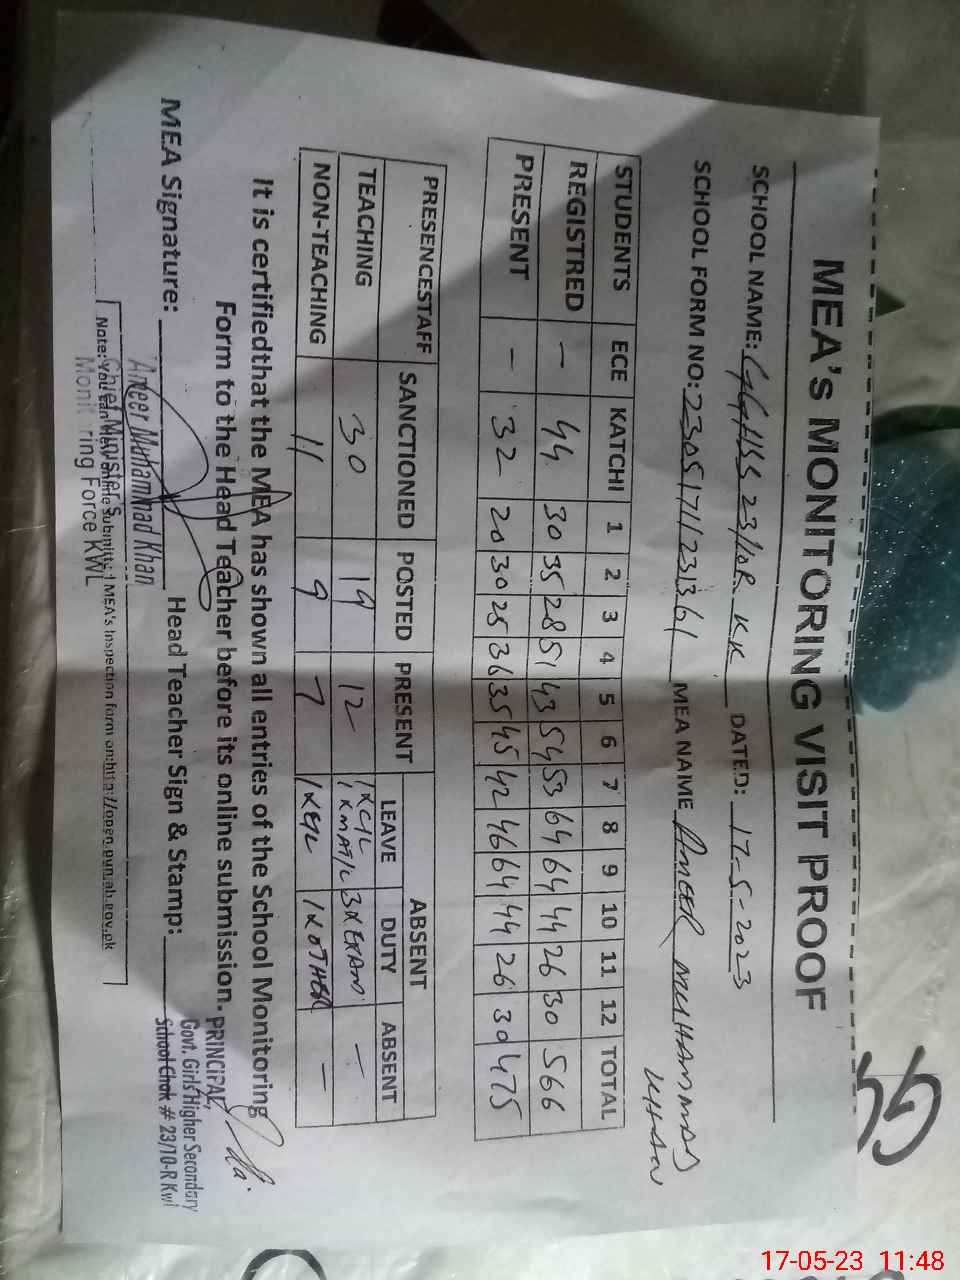 MEA's MONITORING VISIT PROOF
SCHOOL NAME: GGHSS 23/10R KK DATED: 17-5-2023
SCHOOL FORM NO: MEA NAME AMEER MUHAMMAD KHAN
STUDENTS ECE KATCHI 1 2 3 4 5 6 7 8 9 10 11 12 TOTAL
REGISTRED - 44 30 35 28 51 43 54 53 64 64 44 26 30 566
PRESENT - 32 20 30 25 36 35 45 42 46 64 44 26 30 475
PRESENCESTAFF SANCTIONED POSTED PRESENT ABSENT
LEAVE DUTY ABSENT
TEACHING 30 19 12 1XC/L 1XMAT/L 3XEXAM -
NON-TEACHING 11 9 7 1XE/L 1XOTHER -
It is certifiedthat the MEA has shown all entries of the School Monitoring
Form to the Head Teacher before its online submission.
PRINCIPAL,
Govt. Girls Higher Secondary
School Chak # 23/10-R Kwl
MEA Signature: Head Teacher Sign & Stamp:
Ameer Muhammad Khan
Chief Minister's
Monitoring Force KWL
Note: You can View online Submitted MEA's Inspection form on:http://open.punjab.gov.pk
17-05-23 11:48